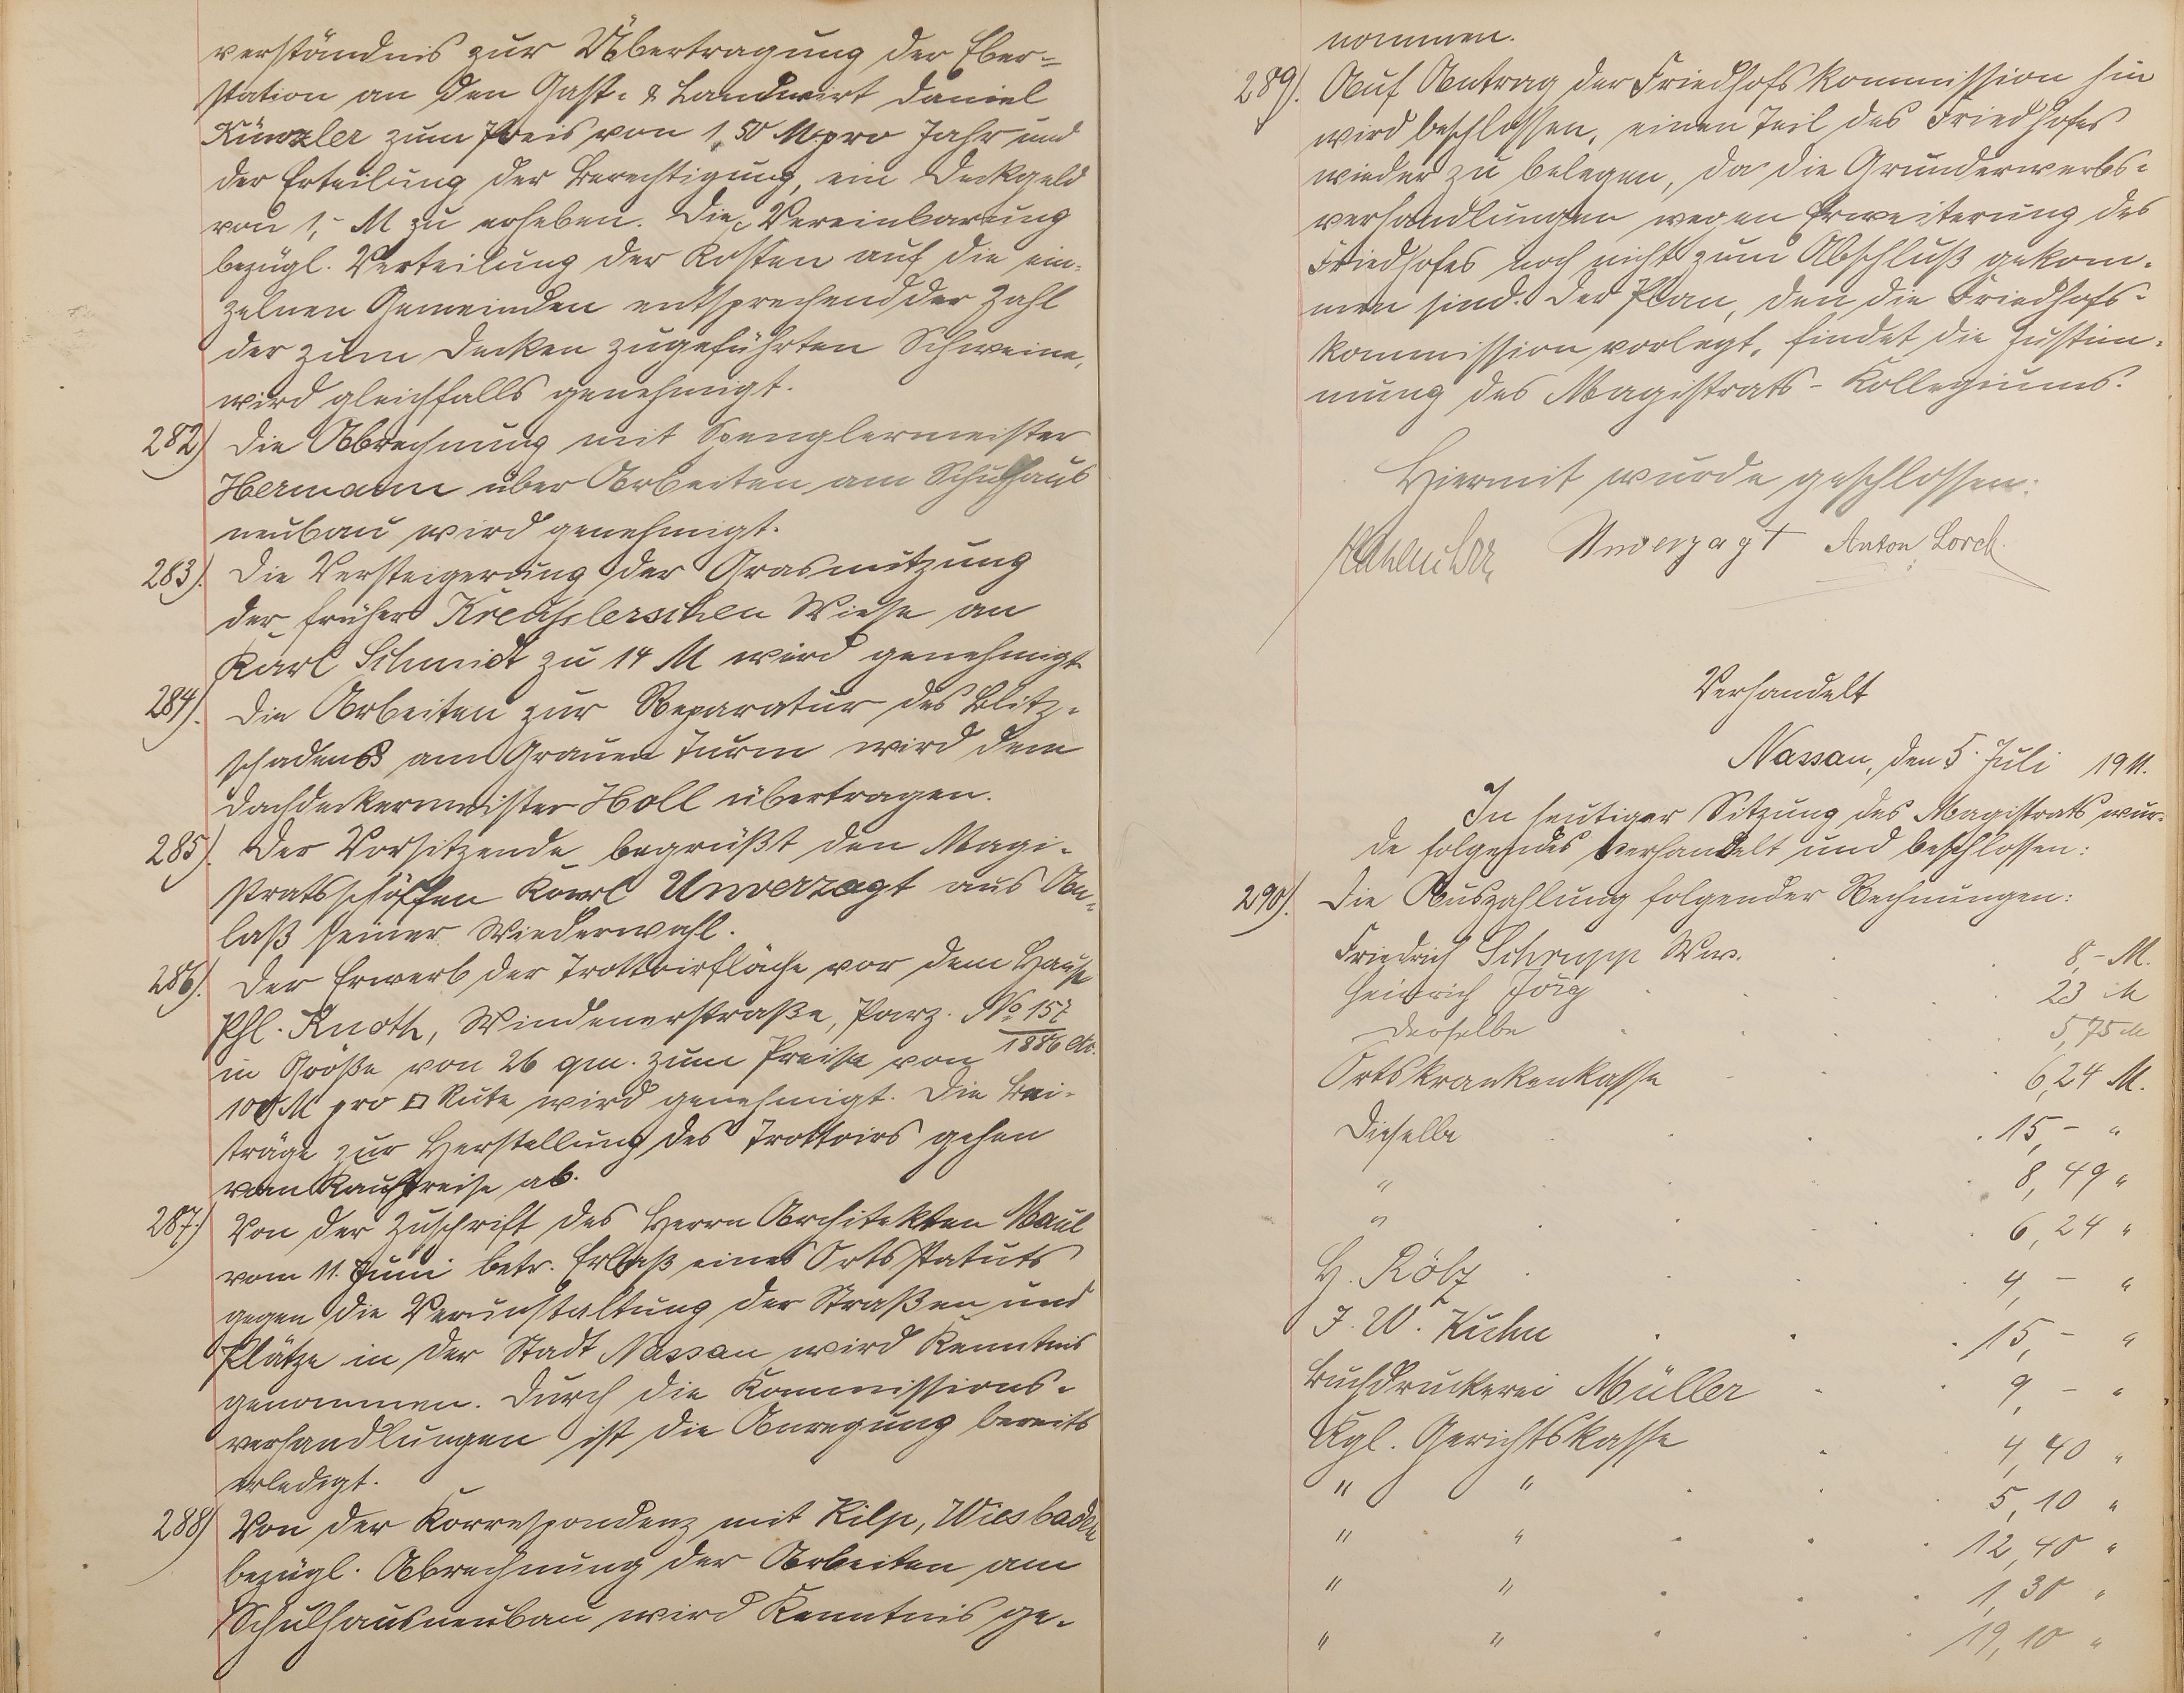 verständnis zur Übertragung der Eber-
station an den Gast- & Landwirt Daniel
Künzler zum Preis von 1,50 M pro Jahr und
der Erteilung der Berechtigung, ein Deckgeld
von 1,- M zu erheben. Die Vereinbarung
bezügl. Verteilung der Kosten auf die ein-
zelnen Gemeinden entsprechend der Zahl
der zum Decken zugeführten Schweine,
wird gleichfalls genehmigt.
282) Die Abrechnung mit Spenglermeister
Hermann über Arbeiten am Schulhaus
neubau wird genehmigt.
283). Die Versteigerung der Grasnutzung
der früher Kreußlerschen Wiese an
Karl Schmidt zu 14 M wird genehmigt
284). Die Arbeiten zur Reparatur des Blitz-
schadens am Grauen Turm wird dem
Dachdeckermeister Holl übertragen.
285). Der Vorsitzende begrüßt den Magi-
stratsschöffen Karl Unverzagt aus An-
laß seiner Wiederwahl.
286). Der Erwerb der Trottoirfläche vor dem Hause
Phl. Knoth, Windenerstraße, Parz. No 157
in Größe von 26 qm. zum Preise von 1886 etc.
100 M pro □ Rute wird genehmigt. Die Bei-
träge zur Herstellung des Trottoirs gehen
vom Kaufpreise ab.
287.) Von der Zuschrift des Herrn Architekten Maul
vom 11. Juni betr. Erlaß eines Ortsstatuts
gegen die Verunstaltung der Straßen und
Plätze in der Stadt Nassau wird Kenntnis
genommen. Durch die Kommissions-
verhandlungen ist die Anregung bereits
erledigt.
288) Von der Korrespondenz mit Kilp, Wiesbaden
bezügl. Abrechnung der Arbeiten am
Schulhausneubau wird Kenntnis ge-
nommen.
289). Auf Antrag der Friedhofskommission hin
wird beschlossen, einen Teil des Friedhofes
wieder zu belegen, da die Grunderwerbs-
verhandlungen wegen Erweiterung des
Friedhofes noch nicht zum Abschluß gekom-
men sind. Der Plan, den die Friedhofs-
kommission vorlegt, findet die Zustim-
mung des Magistrats-Kollegiums.
Hiermit wurde geschlossen:
Unverzagt Anton Lorch.
Verhandelt
Nassau, den 5. Juli 1911.
In heutiger Sitzung des Magistrats wur-
de folgendes verhandelt und beschlossen:
290). Die Auszahlung folgender Rechnungen:
Friedrich Schrupp Wwe. 8,- M.
Heinrich Jörg 23 M
Derselbe 5,75 M
Ortskrankenkasse 6,24 M.
Dieselbe 15,- "
" 8,49 "
" 6,24 "
H. Rölz 4,- "
J. W. Kuhn 15,- "
Buchdruckerei Müller 9,- "
Kgl. Gerichtskasse 4,40 "
" " 5,10 "
" " 12,40 "
" " 1,30 "
" " 19,10 "